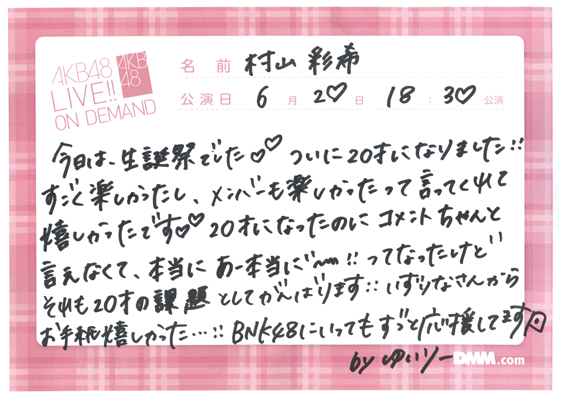 AKB48
LIVE!!
ON DEMAND
AKB
48
名前 村山 彩希
公演日 6月20日 18:30公演
今日は、生誕祭でした♡♡ ついに20才になりました!!
すごく楽しかったし、メンバーも楽しかったって言ってくれて
嬉しかったです♡♡ 20才になったのに コメントちゃんと
言えなくて、本当に あー本当に〜!! ってなったけど
それも20才の課題としてがんばります!! いずりなさんから
お手紙嬉しかった…!! BNK48にいってもずっと応援してます
by ゆいりー
DMM.com